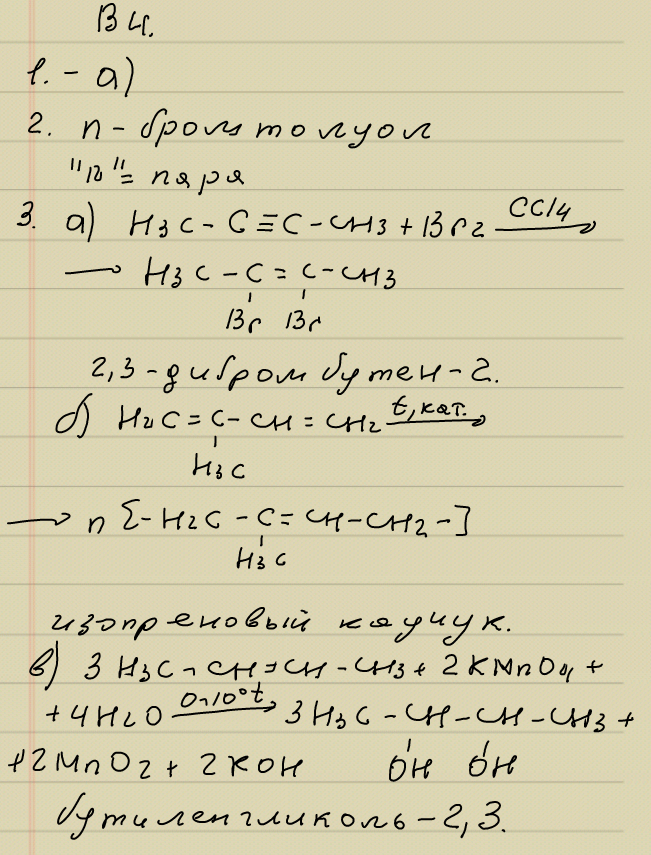 В 4.
1. - а)
2. п - бромтолуол
"п" = пара
3. а) H3C - C ≡ C - CH3 + Br2 CCl4 →
→ H3C - C = C - CH3
Br Br
2,3 - дибромбутен - 2.
б) H2C = C - CH = CH2 t, кат. →
H3C
→ n [- H2C - C = CH - CH2 -]
H3C
изопреновый каучук.
в) 3 H3C - CH = CH - CH3 + 2 KMnO4 +
+ 4 H2O 0-10°t → 3 H3C - CH - CH - CH3 +
+ 2 MnO2 + 2 KOH OH OH
бутиленгликоль - 2,3.